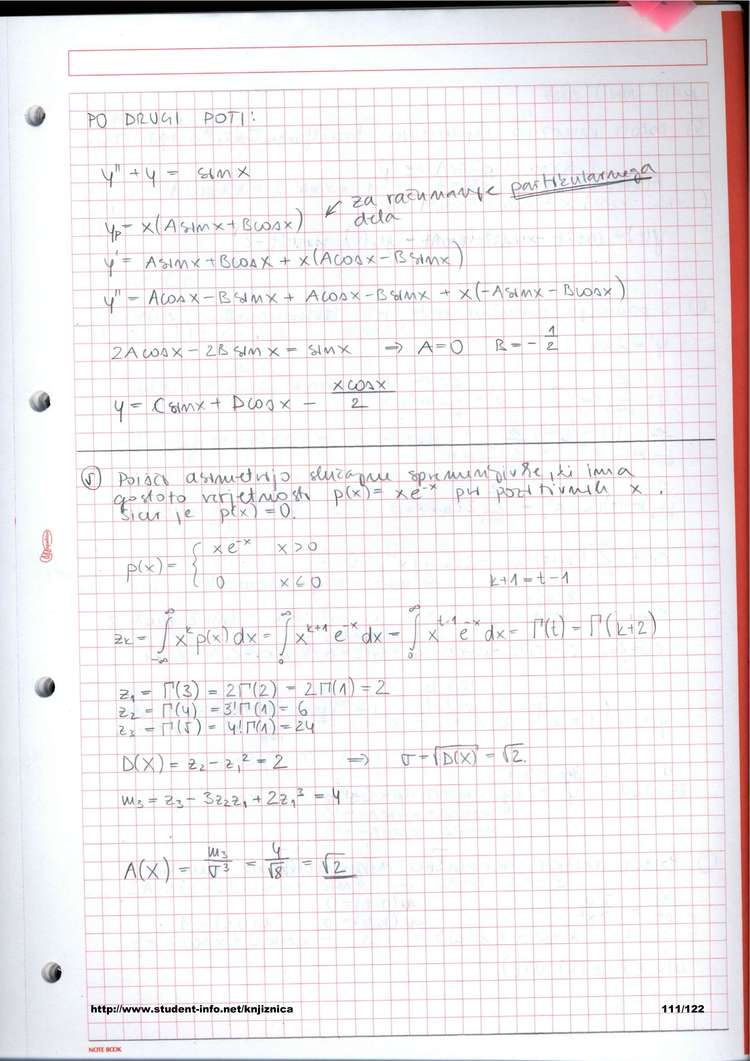 PO DRUGI POTI:
y'' + y = sin x
y_p = x(A sin x + B cos x) ↙ za računanje partikularnega
dela
y' = A sin x + B cos x + x(A cos x − B sin x)
y'' = A cos x − B sin x + A cos x − B sin x + x(−A sin x − B cos x)
2A cos x − 2B sin x = sin x ⇒ A = 0 B = −1/2
y = C sin x + D cos x − (x cos x)/2
5) Poišči asimetrijo slučajne spremenljivke, ki ima
gostoto verjetnosti p(x) = xe^-x pri pozitivnih x.
Sicer je p(x) = 0.
p(x) = { xe^-x x > 0
0 x < 0
k+1 = t−1
z_k = ∫_{-∞}^{∞} x^k p(x) dx = ∫_0^∞ x^{k+1} e^{-x} dx = ∫_0^∞ x^{t-1} e^{-x} dx = Γ(t) = Γ(k+2)
z_1 = Γ(3) = 2Γ(2) = 2Γ(1) = 2
z_2 = Γ(4) = 3!Γ(1) = 6
z_3 = Γ(5) = 4!Γ(1) = 24
D(X) = z_2 − z_1^2 = 2 ⇒ σ = √D(X) = √2.
m_3 = z_3 − 3z_2z_1 + 2z_1^3 = 4
A(X) = m_3/σ^3 = 4/√8 = √2
http://www.student-info.net/knjiznica 111/122
NOTE BOOK